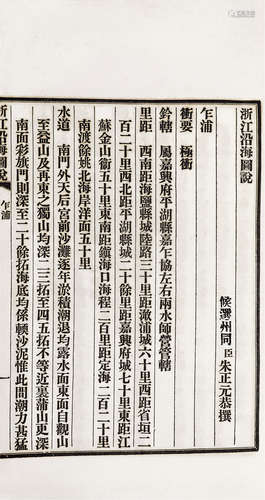 浙江沿海圖說
候選州同臣朱正元恭撰
乍浦
衝要 極衝
鈐轄 屬嘉興府平湖縣嘉乍協左右兩水師營管轄
里距 西南距海鹽縣城陸路三十里距澉浦城六十里西距省垣二
百二十里西北距平湖縣城二十餘里距嘉興府城七十里東距江
蘇金山衞五十里東南距鎮海口海程二百里距定海二百二十里
南渡餘姚北海岸洋面五十里
水道 南門外天后宮前沙灘逐年淤積潮退均露水面東面自觀山
至益山及再東之獨山均深二三拓至四五拓不等近裏蒲山更深
南面彩旗門則深至二十餘拓海底均係頓沙泥惟此間潮力甚猛
浙江沿海圖說
乍浦